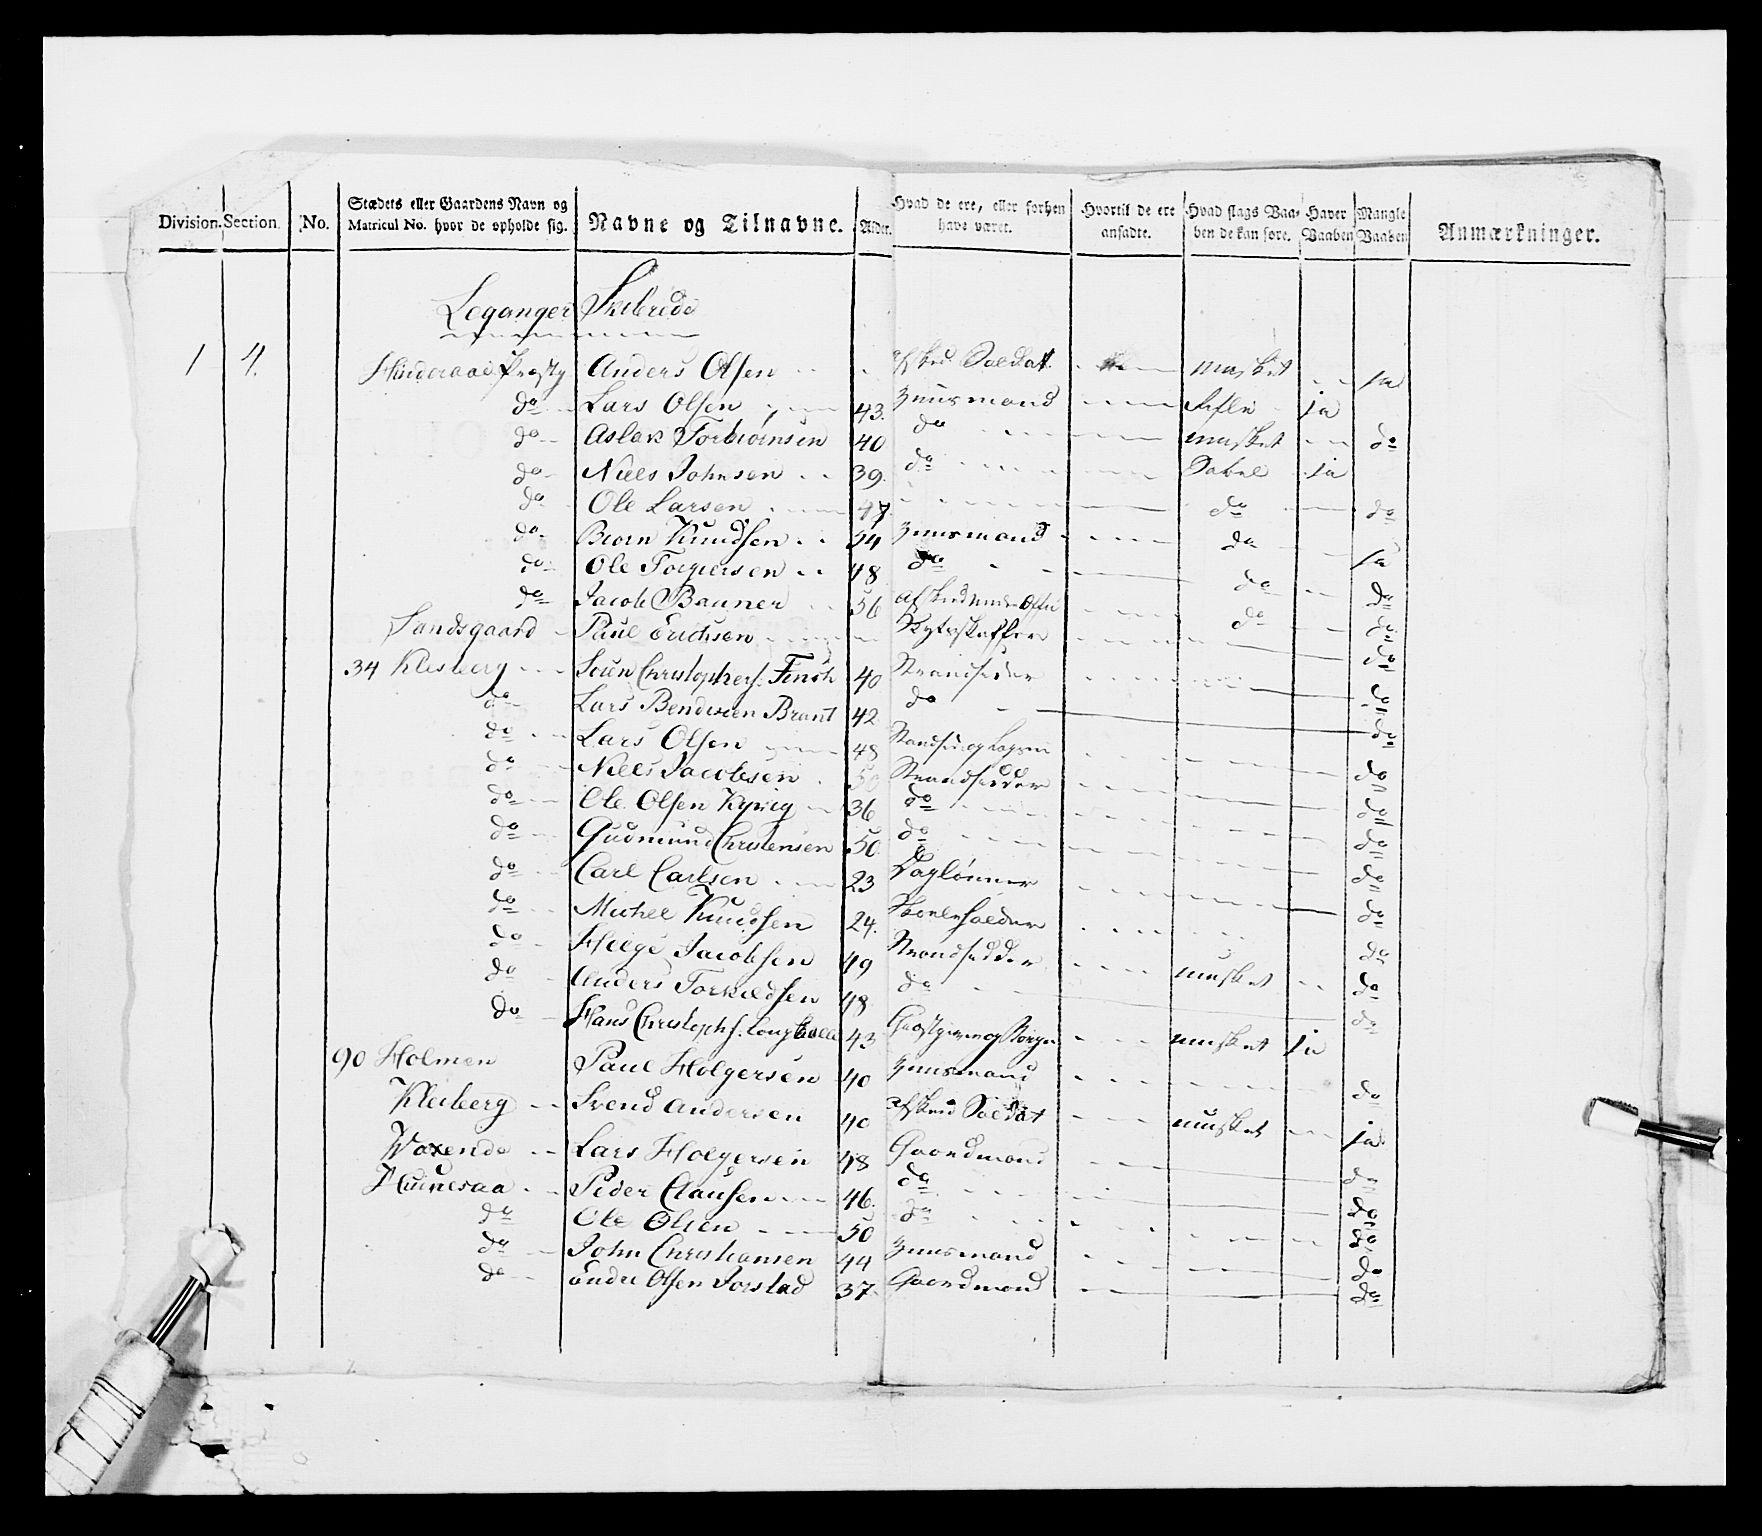 Division. Section. No. Stædets eller Gaardens Navn og Matricul No. hvor de opholde sig. Navne og Tilnavne. Alder. Hvad de ere, eller forhen have været. Hvortil de ere ansadte. Hvad slags Vaaben de kan føre. Haver Vaaben Mangle Vaaben Anmærkninger.
Leganger Skibrede
1 4. Anders Olsen afsked Soldat musket ja
do Lars Olsen 43. Huusmand Rifle ja
do Aslak Torbiørnsen 40 do musket do
do Niels Johnsen 39. do Sabel ja
do Ole Larsen 47 do do
do Biørn Knudsen 54 Huusmand do ja
do Ole Torgiersen 48 do do do
do Jacob Bauner 56 do do
Sandsgaard Paul Erichsen do
34 Kleiberg Søren Christophers. Finch 40 Strandsidder do
do Lars Bendixen Brant 42 do do
do Lars Olsen 48 do
do Niels Jacobsen 50 Strandsidder do
do Ole Olsen 36 do do
do Gudmund Christensen 50. do do
do Carl Carlsen 23 Daglønner do
do Michel Knudsen 24. Skoleholder do
do Helge Jacobsen 49 Strandsidder musket do
do Anders Torkildsen 48 do do
do Hans Christophs. 43 musket ja
90 Holmen Paul Holgersen 40 Huusmand do
Kleiberg Svend Andersen 40 afsked Soldat musket ja
Woxende Lars Holgersen 48 Gaardmand do
Peder Clausen 46. do do
do Ole Olsen 50 do do
do John Christiansen 44 Huusmand do
do Endre Olsen Jorstad 37. Gaardmand do